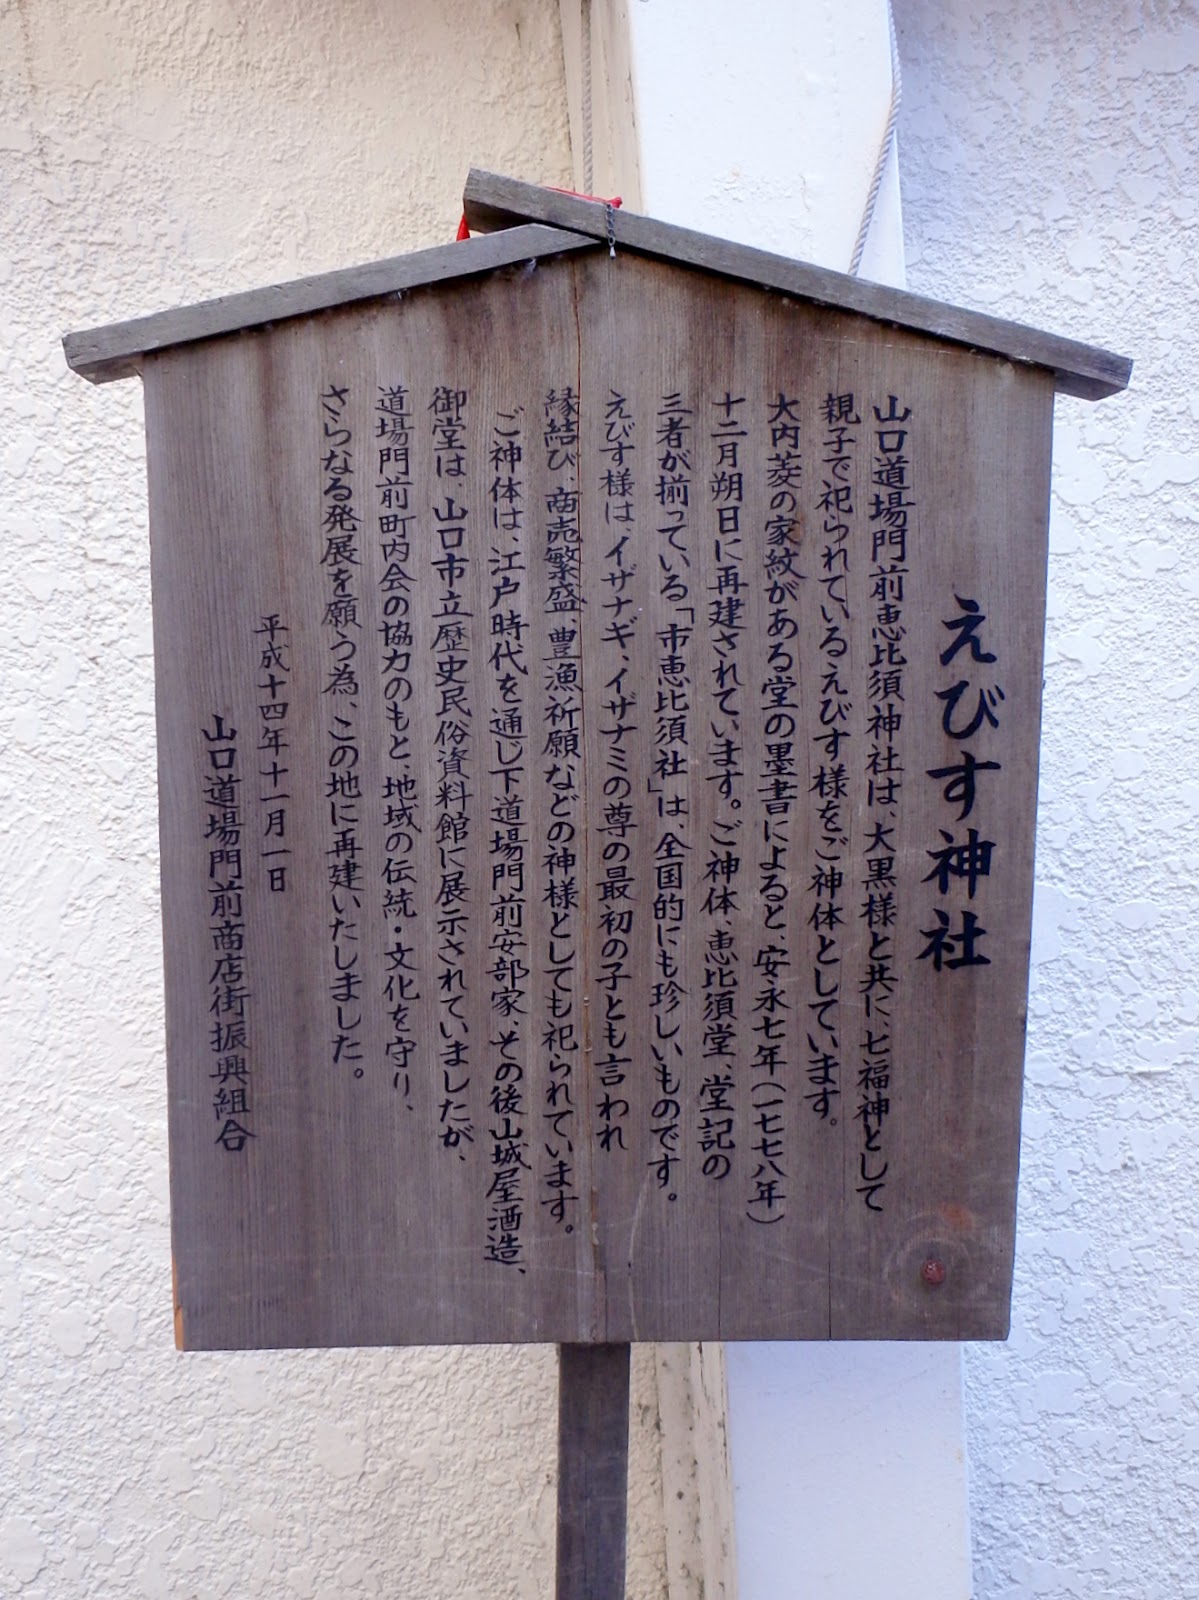 えびす神社
山口道場門前恵比須神社は、大黒様と共に、七福神として
親子で祀られているえびす様をご神体としています。
大内菱の家紋がある堂の墨書によると、安永七年(一七七八年)
十二月朔日に再建されています。ご神体、恵比須堂、堂記の
三者が揃っている「市恵比須社」は、全国的にも珍しいものです。
えびす様は、イザナギ、イザナミの尊の最初の子とも言われ
縁結び、商売繁盛、豊漁祈願などの神様としても祀られています。
ご神体は、江戸時代を通じ下道場門前安部家、その後山城屋酒造、
御堂は、山口市立歴史民俗資料館に展示されていましたが、
道場門前町内会の協力のもと、地域の伝統・文化を守り、
さらなる発展を願う為、この地に再建いたしました。
平成十四年十一月一日
山口道場門前商店街振興組合